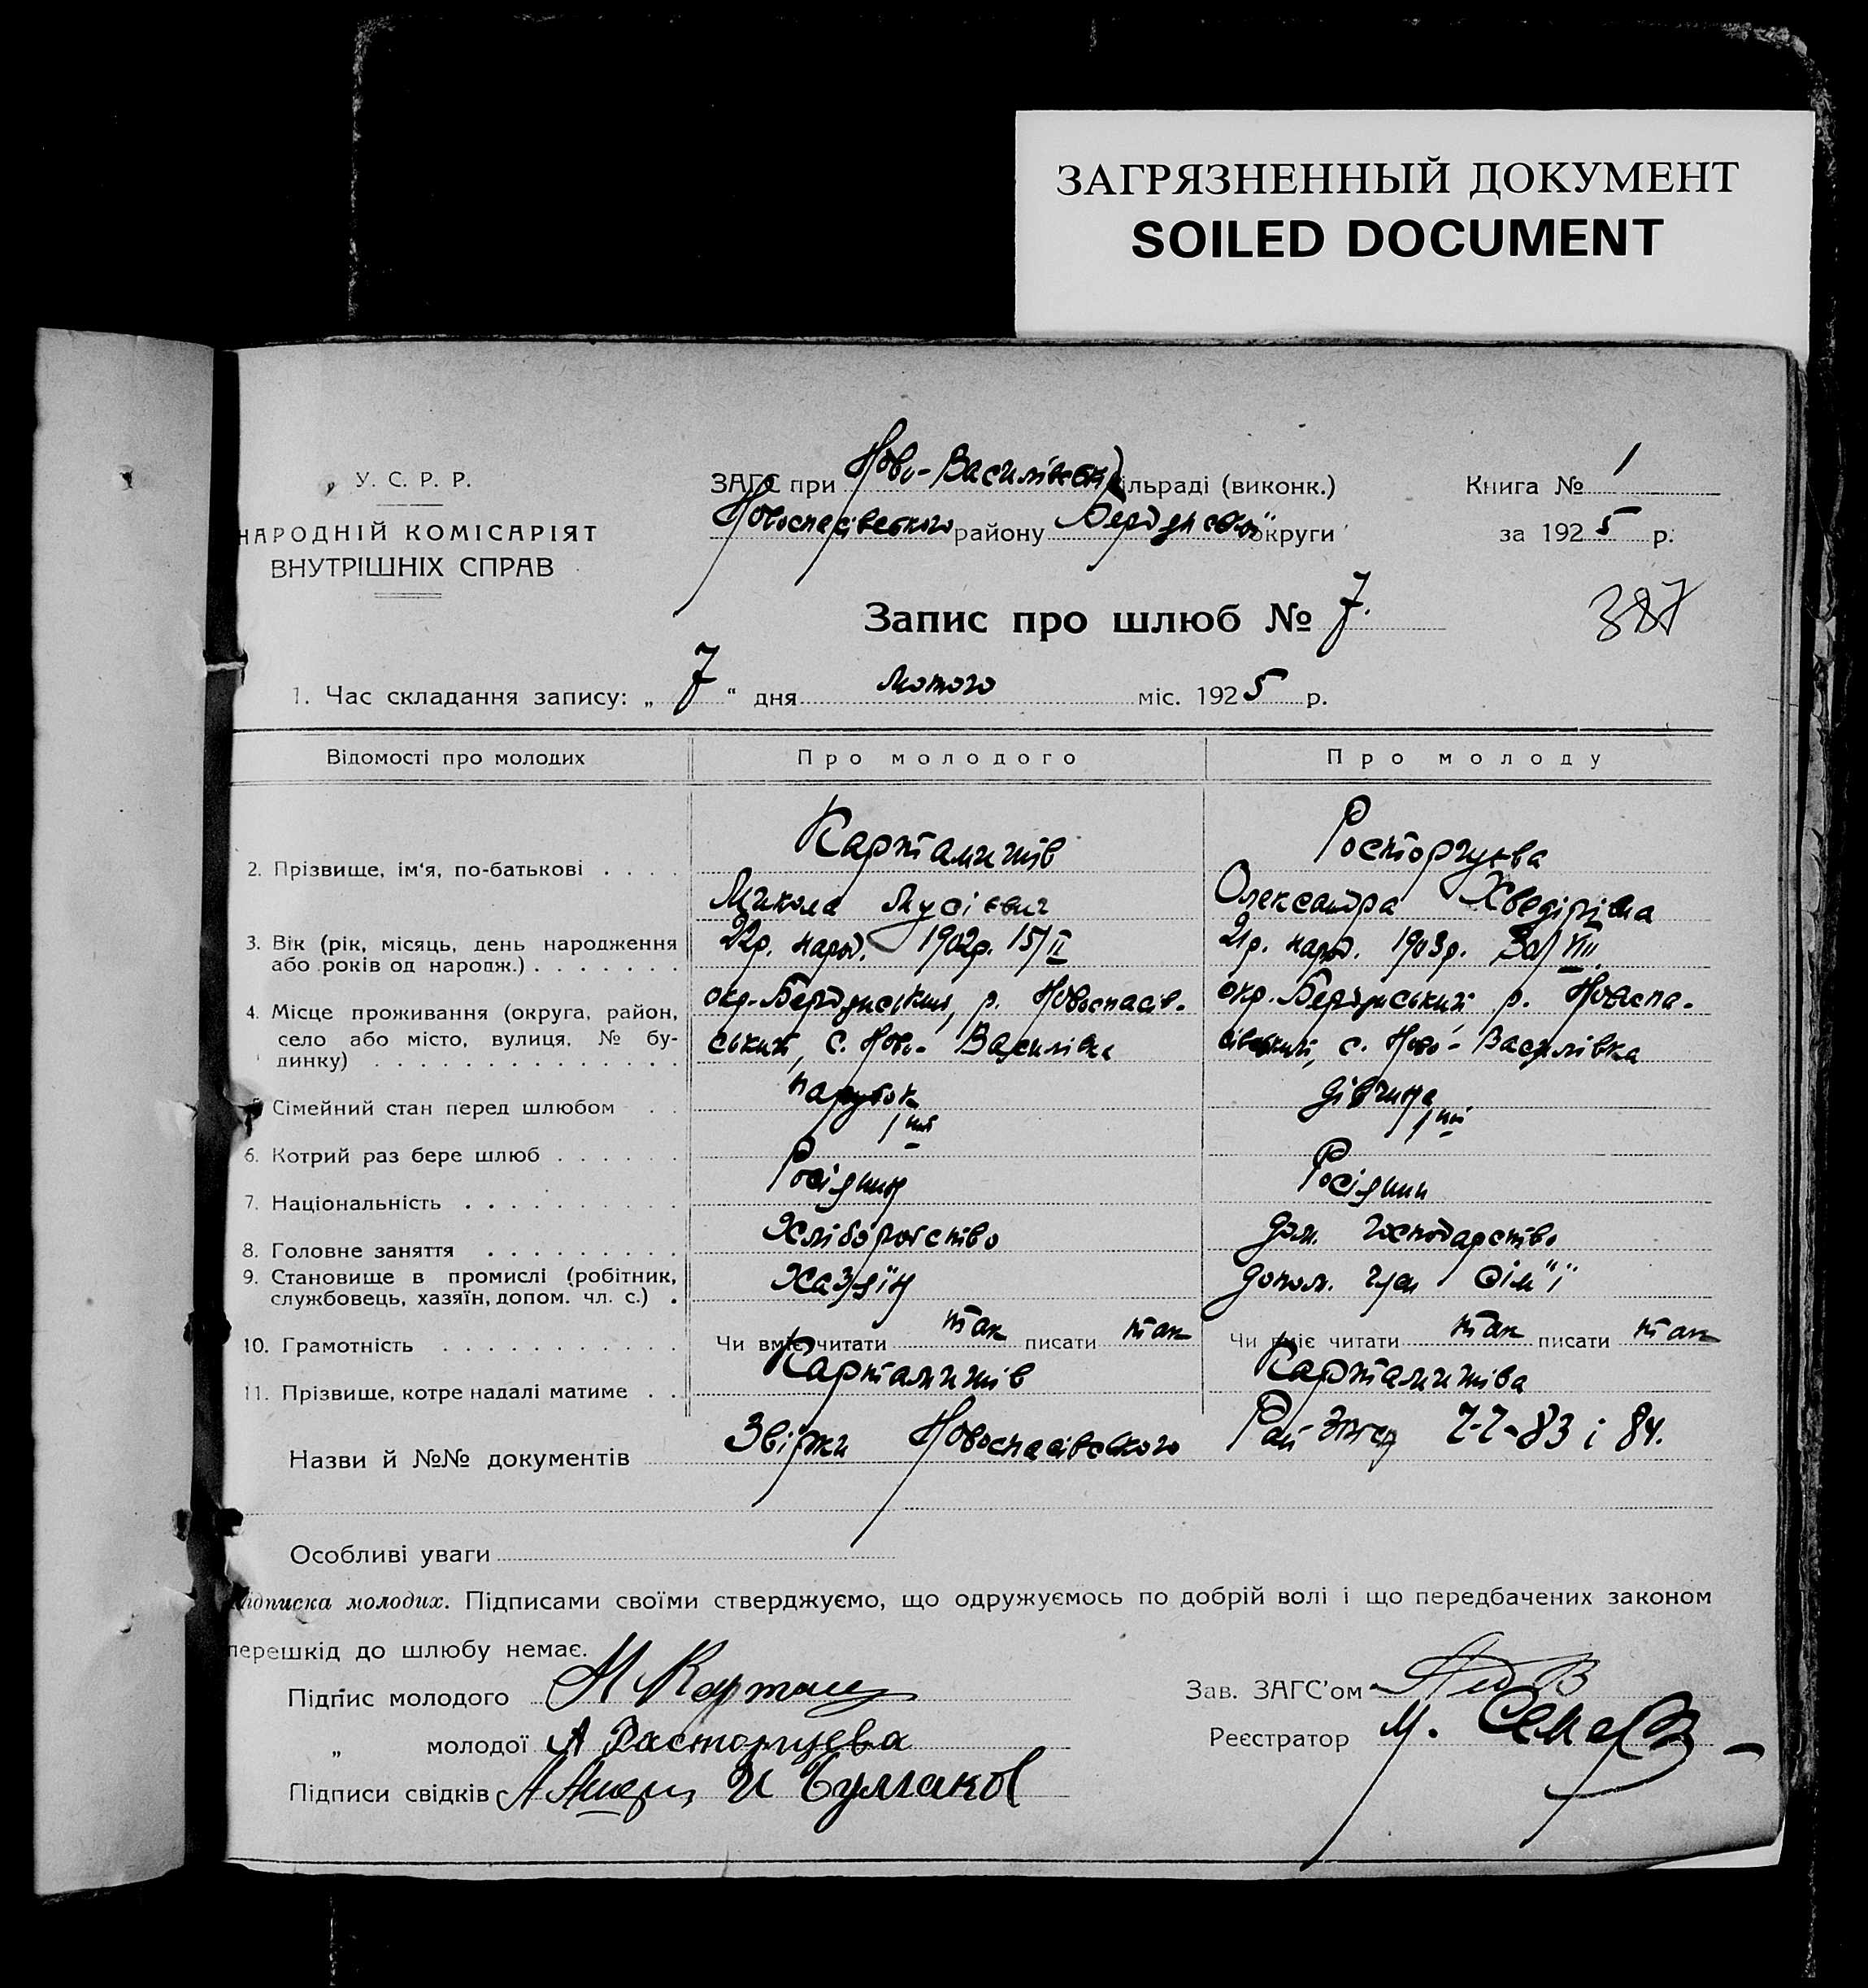 ЗАГРЯЗНЕННЫЙ ДОКУМЕНТ
SOILED DOCUMENT
У. С. Р. Р.
НАРОДНІЙ КОМІСАРІЯТ
ВНУТРІШНІХ СПРАВ
ЗАГС при Ново-Василівській сільраді (виконк.)
Новоспасівського району Бердянської округи
Книга № 1
за 1925 р.
Запис про шлюб № 7.
387
1. Час складання запису: „ 7 “ дня лютого міс. 1925 р.
Відомості про молодих Про молодого Про молоду
2. Прізвище, ім'я, по-батькові . . . .
Карталишів Микола Мусієвич
Росторгуєва Олександра Хведірівна
3. Вік (рік, місяць, день народження
або років од народж.) . . . . . . .
22р. народ. 1902р. 15/II
21р. народ. 1903р. /VIII.
4. Місце проживання (округа, район,
село або місто, вулиця, № бу-
динку) . . . . . . . . . . . . . .
окр. Бердянський, р. Новоспасів-
ський, с. Ново-Василівка
окр. Бердянський р. Новоспа-
сівський, с. Ново-Василівка
5. Сімейний стан перед шлюбом . . парубок дівчина
6. Котрий раз бере шлюб . . . . . . 1ий 1ий
7. Національність . . . . . . . . . . Росіянин Росіянин
8. Головне заняття . . . . . . . . . Хліборобство дом. господарство
9. Становище в промислі (робітник,
службовець, хазяїн, допом. чл. с.) .
Хазяїн допом. член сім"ї
10. Грамотність . . . . . . . . . . . Чи вміє читати так писати так Чи вміє читати так писати так
11. Прізвище, котре надалі матиме . . Карталишів Карталишіва
Назви й №№ документів Звірки Новоспасівського 83 і 84.
Особливі уваги
Підписка молодих. Підписами своїми стверджуємо, що одружуємось по добрій волі і що передбачених законом
перешкід до шлюбу немає.
Підпис молодого М Картал
Зав. ЗАГС'ом
„ молодої А Расторгуева
Реєстратор М.
Підписи свідків А И Булгаков